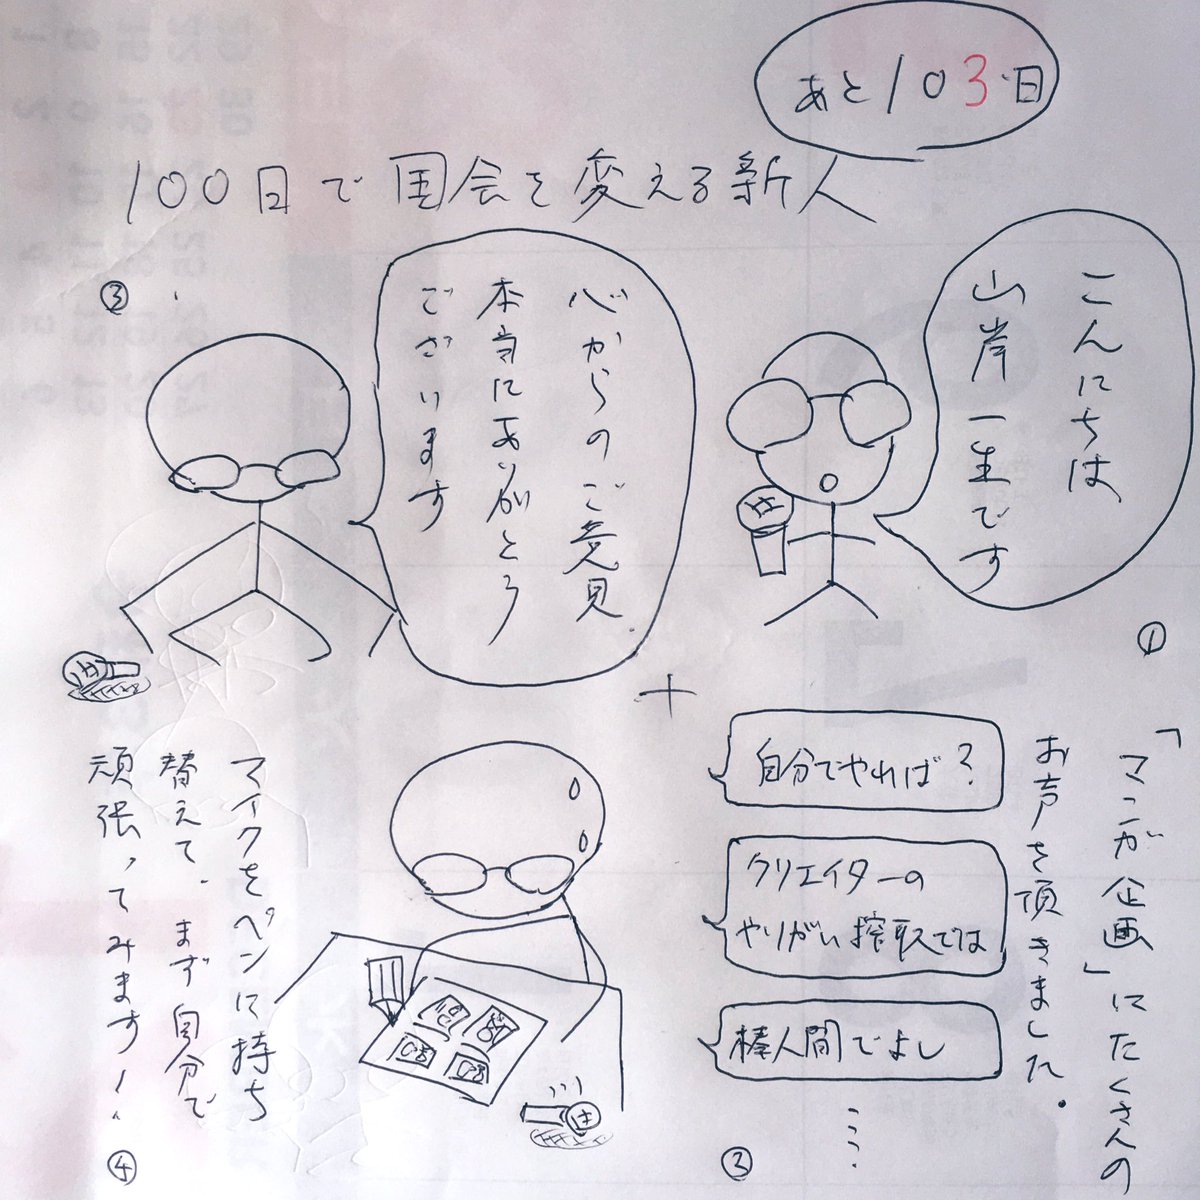 あと103日
100日で国会を変える新人
こんにちは
山岸一生です
①
「マンガ企画」にたくさんの
お声を頂きました.
自分でやれば?
クリエイターの
やりがい搾取では
棒人間でよし
⋮
③
心からのご意見
本当にありがとう
ございます
③
マイクをペンに持ち
替えて、まず自分で
頑張ってみます!
④